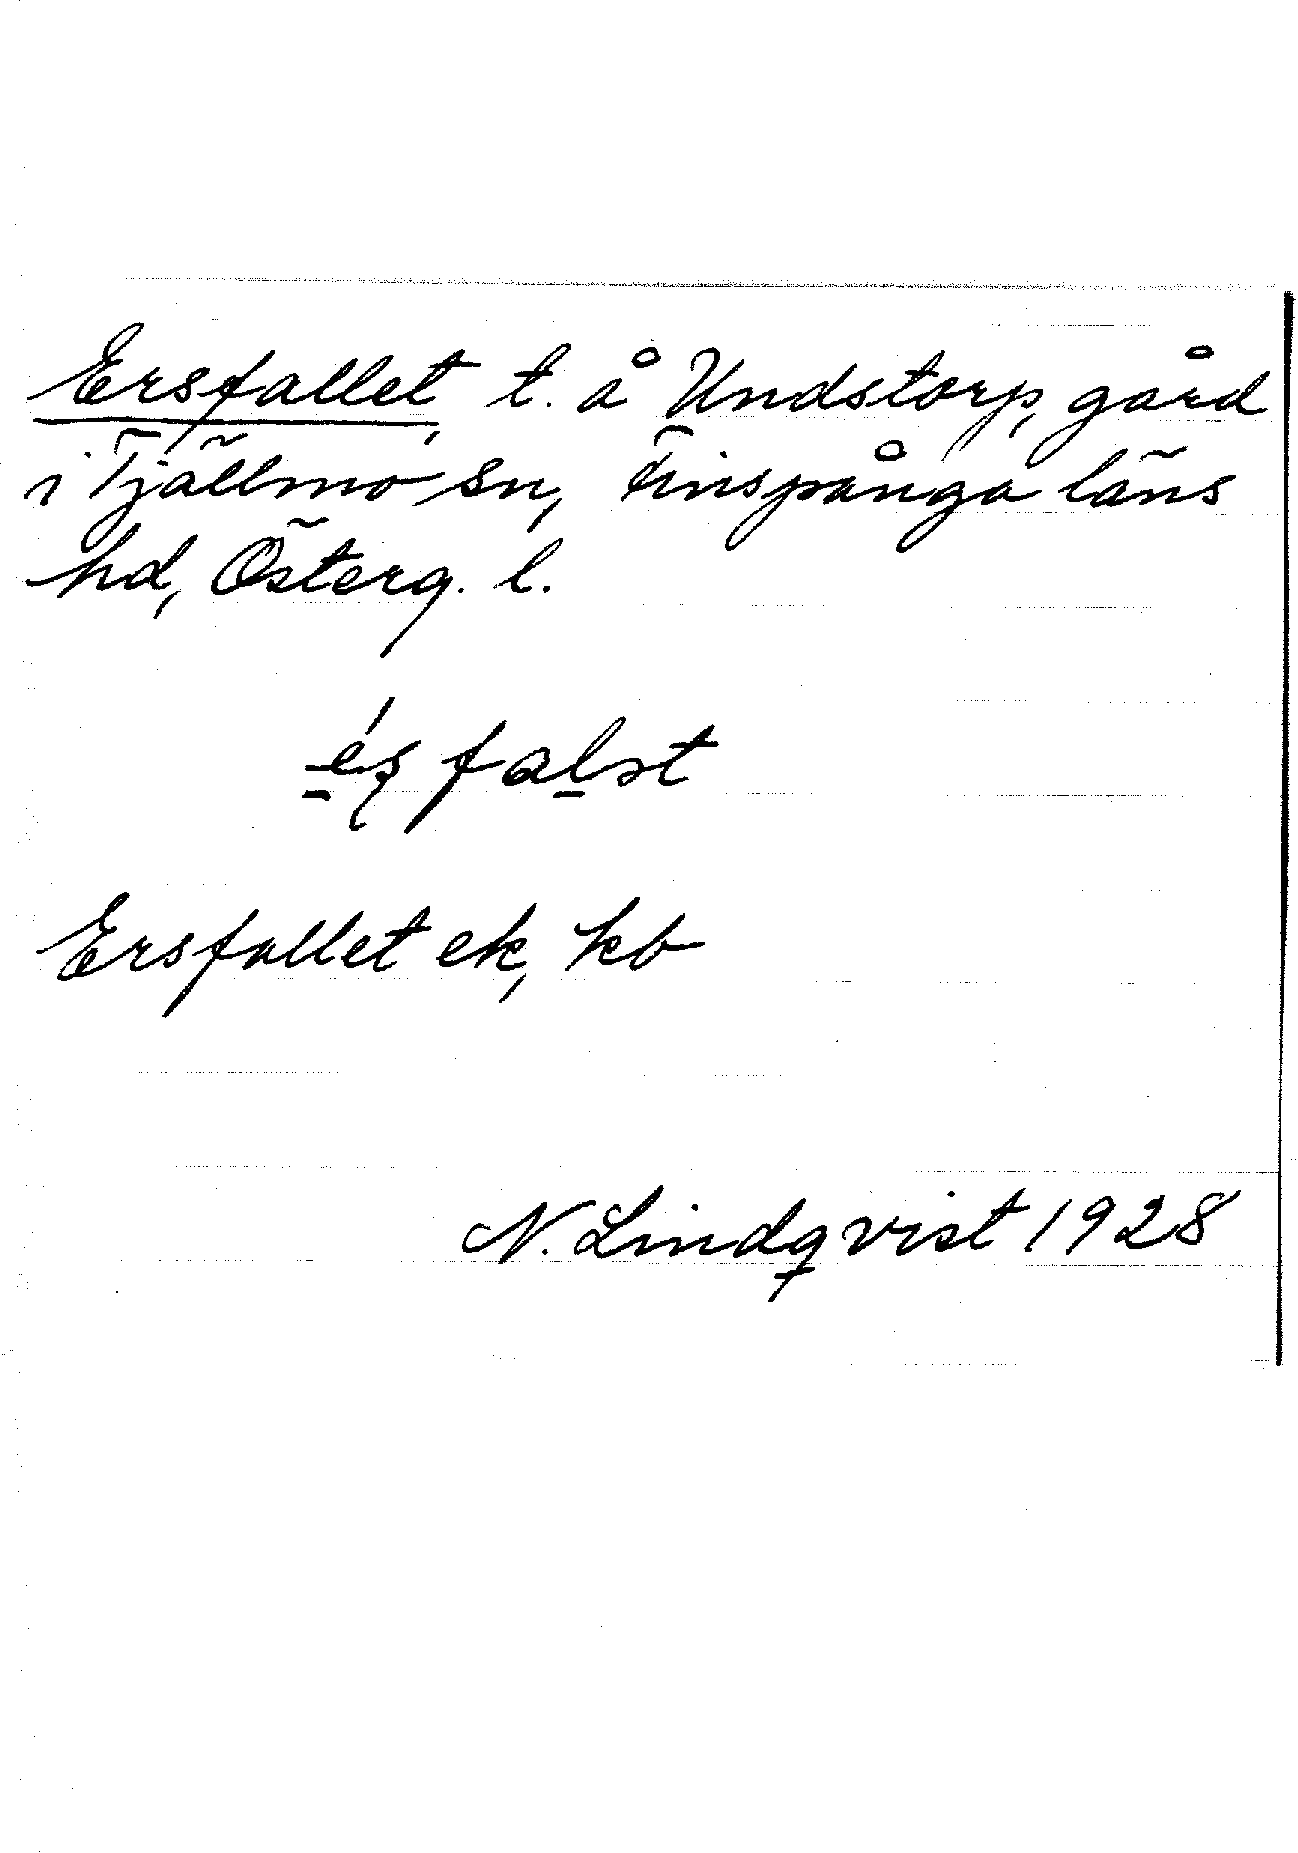 Ersfallet, t. å Undstorp, gård
i Tjällmo sn, Finspånga läns
hd, Österg. l.
Ersfallet ek, kb
N. Lindqvist 1928